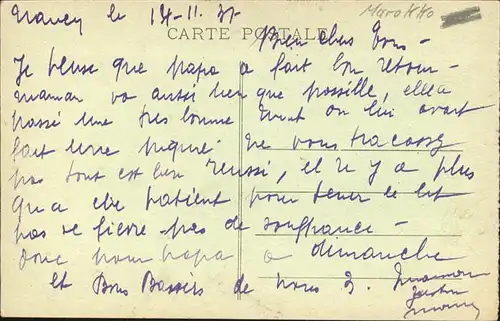 Nancy le 14-11.35-
Marokko
CARTE POSTALE
Bien chers Tous -
Je pense que papa a fait bon retour -
maman va aussi bien que possible, elle a
passé une très bonne nuit on lui avait
fait une piqure. Ne vous tracassez
pas tout est bien réussi, et il y a plus
qu'a être patient pour tenir le lit
pas de fièvre - pas de souffrance -
donc pour papa a dimanche
et Bons Baisers de nous 3. maman